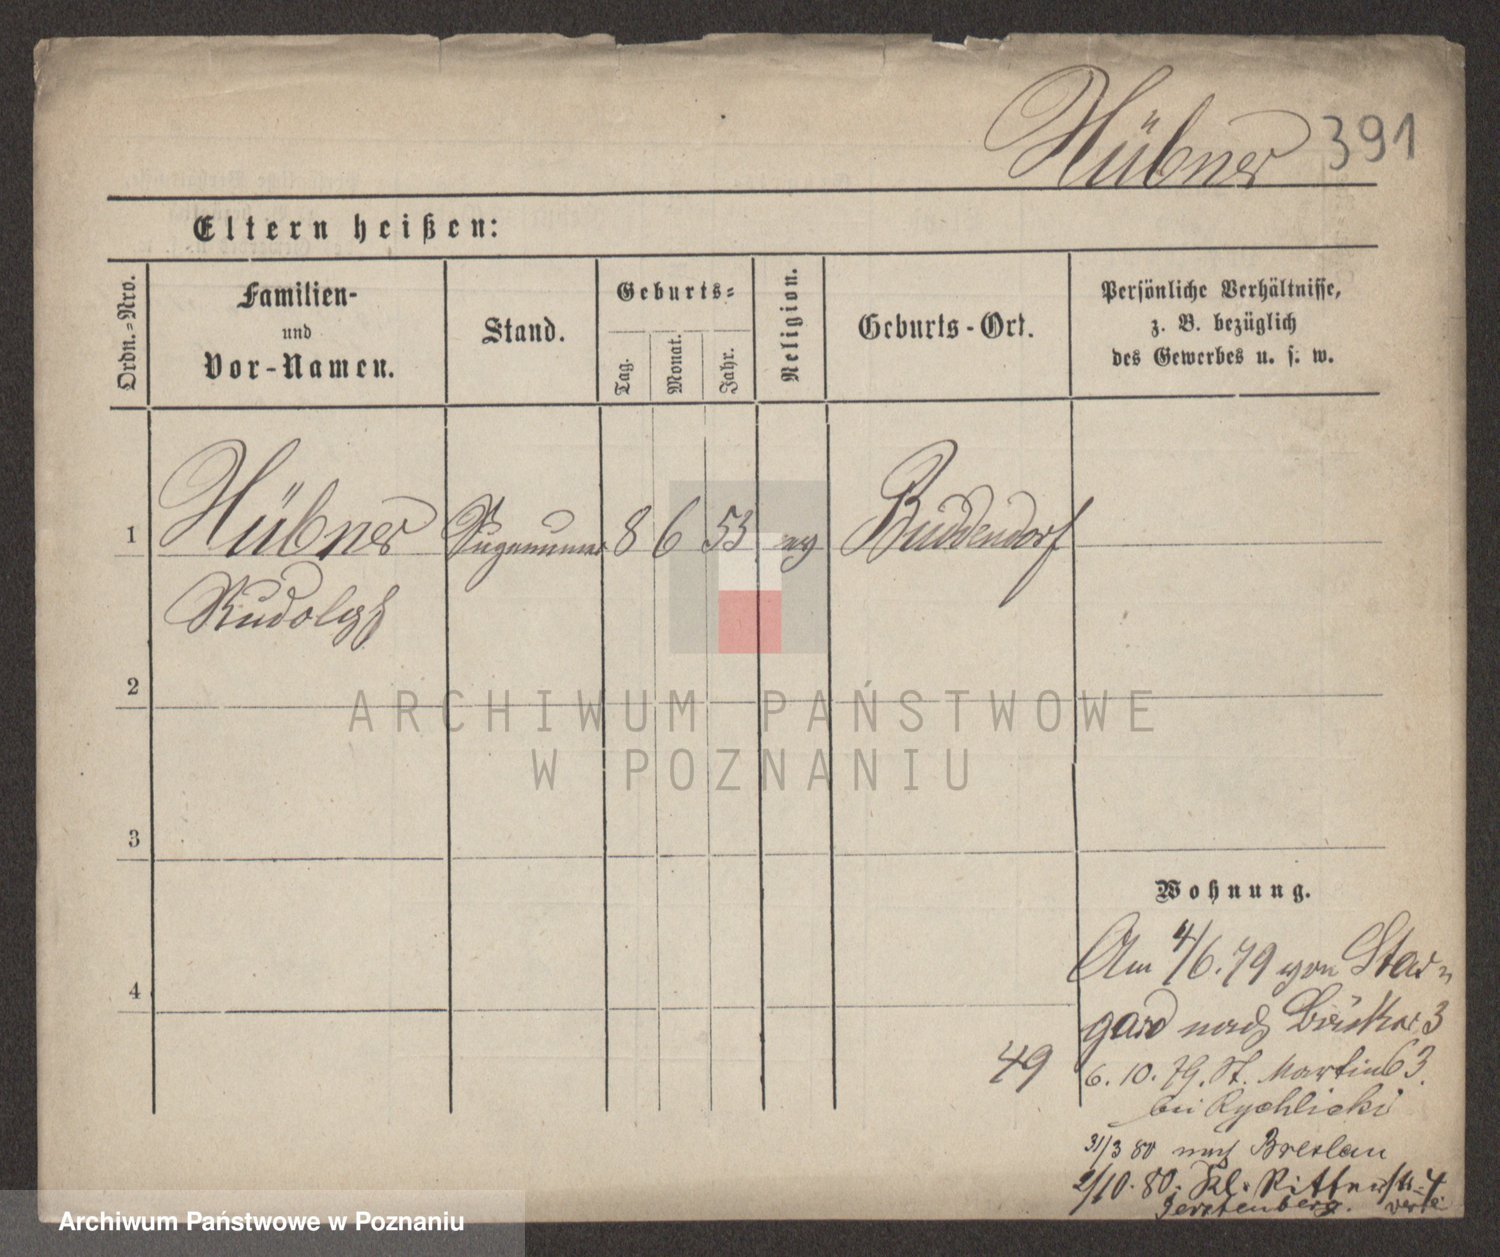 Hübner 391
Eltern heißen:
Ordn.-Nro.
Familien-
und
Vor-Namen.
Stand.
Geburts-
Tag.
Monat.
Jahr.
Religion.
Geburts-Ort.
Persönliche Verhältnisse,
z. B. bezüglich
des Gewerbes u. s. w.
1 Hübner 8 6 53 Buddendorf
Rudolph
2
ARCHIWUM PAŃSTWOWE
W POZNANIU
3
Wohnung.
4
Am 4/6.79 von Star-
gard nach 3
49
6. 10. 79. St. Martin 63.
bei Rychlicki
31/3 80 nach Breslau
2/10.80. Kl. Ritterstr. 4
Gerstenberg.
Archiwum Państwowe w Poznaniu